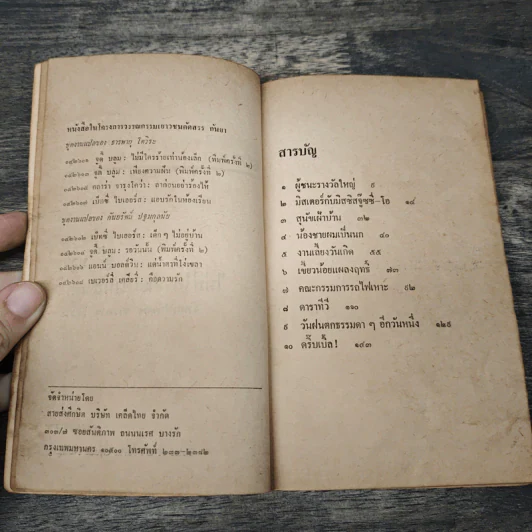 หนังสือในโครงการวรรณกรรมเยาวชนคัดสรร
ชุดงานแปลของ
๑๔๒๖๐๑ จูดี้ บลูม: ไม่มีใครร้ายเท่าน้องเล็ก (พิมพ์ครั้งที่ ๒)
จูดี้ บลูม: เพียงความฝัน (พิมพ์ครั้งที่ ๒)
คลารา อาจร้องไห้
เบ็ทซี่ ไบเออร์ส: แอบรักในห้องเรียน
ชุดงานแปลของ
เบ็ทซี่ ไบเออร์ส: เด็ก ๆ ไม่อยู่บ้าน
จูดี้ บลูม: รอวันนั้น (พิมพ์ครั้งที่ ๒)
เบเวอร์ลี่ เคลียรี่: คือความรัก
จัดจำหน่ายโดย
สายส่งศึกษิต บริษัท เคล็ดไทย จำกัด
๓๐๓/๗ ซอยสันติภาพ ถนนนเรศ บางรัก
กรุงเทพมหานคร ๑๐๕๐๐ โทรศัพท์
สารบัญ
๑ ผู้ชนะรางวัลใหญ่ ๙
๒ มิสเตอร์กับมิสซิสจู๊ซซี่-โอ ๑๔
๓ สุนัขเฝ้าบ้าน ๓๒
๔ น้องชายผมเป็นนก ๔๐
๕ งานเลี้ยงวันเกิด ๕๕
๖ เขี้ยวน้อยแผลงฤทธิ์ ๗๓
๗ คณะกรรมการรถไฟเหาะ ๙๒
๘ ดาราทีวี ๑๑๐
๙ วันฝนตกธรรมดา ๆ อีกวันหนึ่ง ๑๒๙
๑๐ ดริ๊บเบิ้ล! ๑๔๓